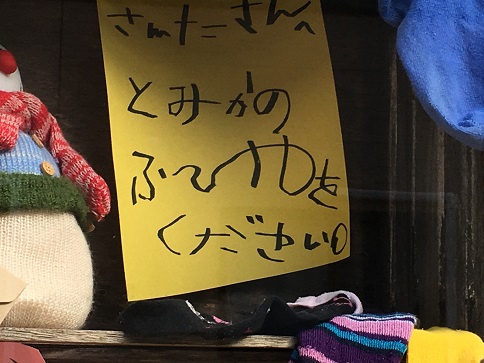 さんたこさんへ
とみかの
ふひやを
ください。